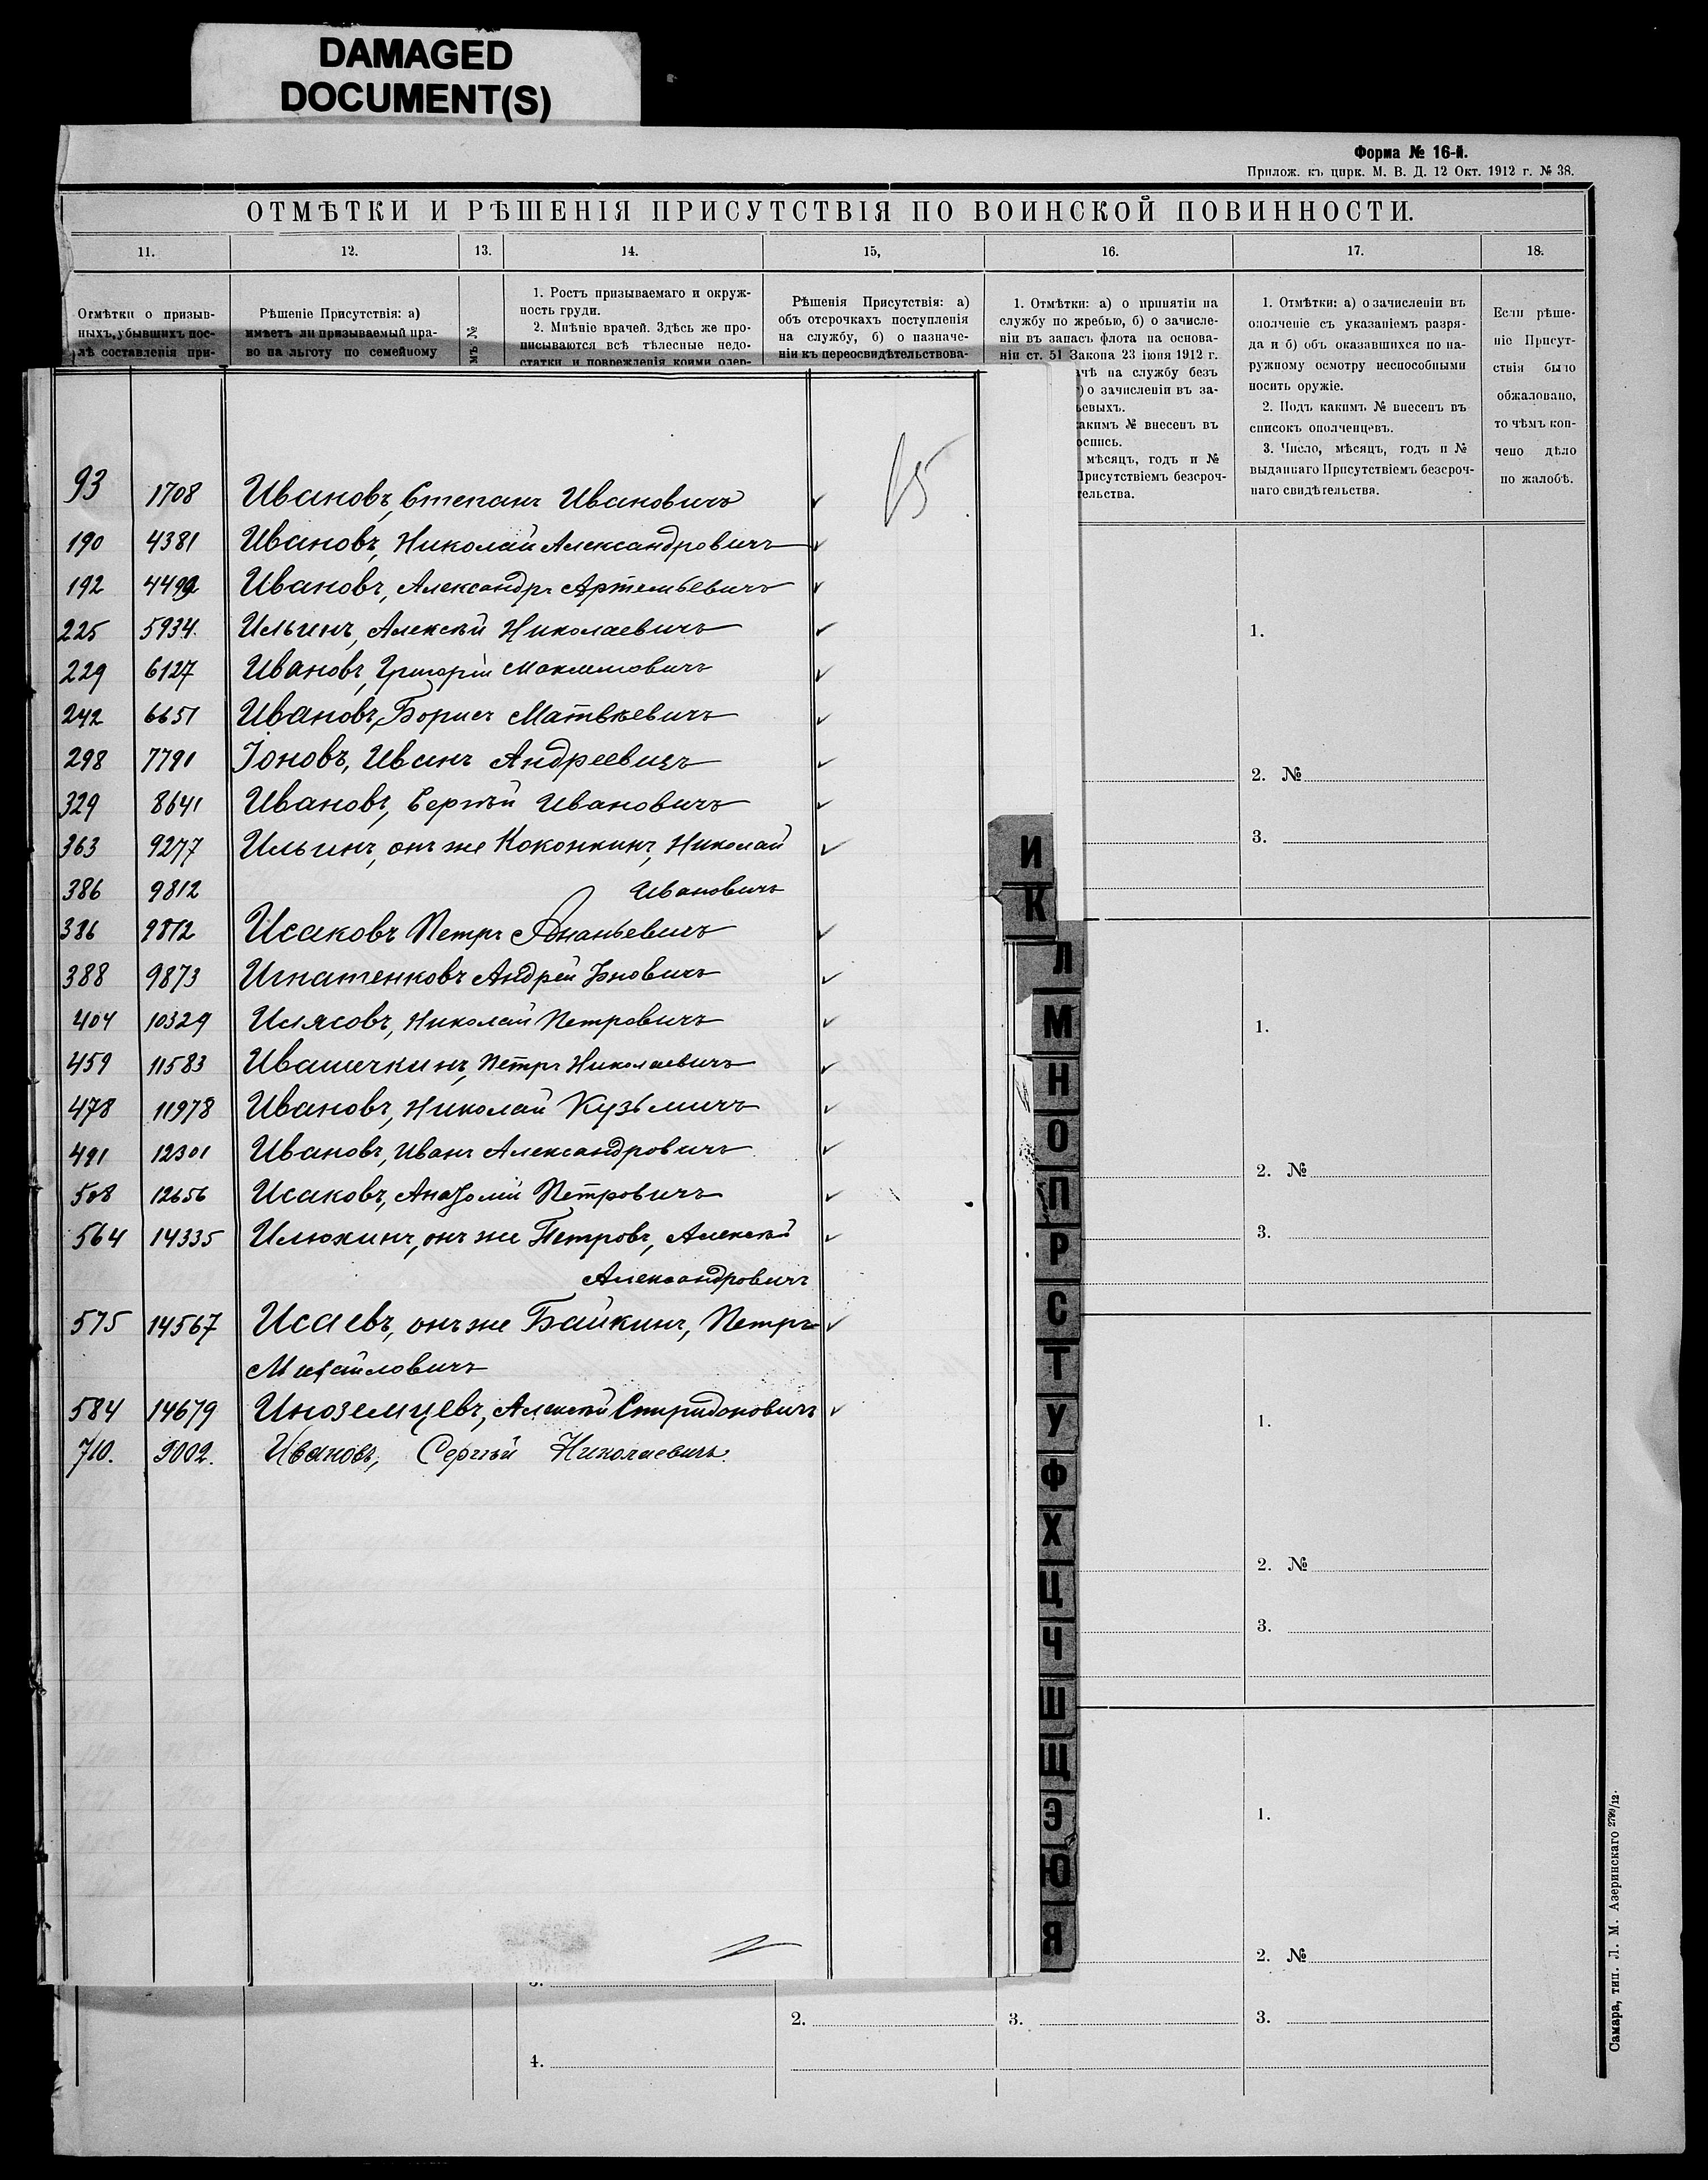 DAMAGED
DOCUMENT(S)
Форма № 16-й.
Прилож. къ цирк. М. В. Д. 12 Окт. 1912 г. № 38.
ОТМѢТКИ И РѢШЕНІЯ ПРИСУТСТВІЯ ПО ВОИНСКОЙ ПОВИННОСТИ.
11. 12. 13. 14. 15, 16. 17. 18.
Отмѣтки о призыв-
ныхъ, убывшихъ пос-
лѣ составленія при-
Рѣшеніе Присутствія: а)
имѣетъ ли призываемый пра-
во на льготу по семейному
мъ №
1. Ростъ призываемаго и окруж-
ность груди.
2. Мнѣніе врачей. Здѣсь же про-
писываются всѣ тѣлесные недо-
статки и поврежденія коими одер-
Рѣшенія Присутствія: а)
объ отсрочкахъ поступленія
на службу, б) о назначе-
ніи къ переосвидѣтельствова-
1. Отмѣтки: а) о принятіи на
службу по жребью, б) о зачисле-
ніи въ запасъ флота на основа-
ніи ст. 51 Закона 23 іюня 1912 г.
ачѣ на службу безъ
) о зачисленіи въ за-
ьевыхъ.
акимъ № внесенъ въ
оспись.
мѣсяцъ, годъ и №
Присутствіемъ безсроч-
тельства.
1. Отмѣтки: а) о зачисленіи въ
ополченіе съ указаніемъ разря-
да и б) объ оказавшихся по на-
ружному осмотру неспособными
носить оружіе.
2. Подъ какимъ № внесенъ въ
списокъ ополченцевъ.
3. Число, мѣсяцъ, годъ и №
выданнаго Присутствіемъ безсроч-
наго свидѣтельства.
Если рѣше-
ніе Присут-
ствія было
обжаловано,
то чѣмъ кон-
чено дѣло
по жалобѣ.
93 1708 Ивановъ, Степанъ Ивановичъ
190 4381 Ивановъ, Николай Александровичъ
192 4492 Ивановъ, Александръ Артемьевичъ
225 5934. Ильинъ, Алексѣй Николаевичъ
229 6127 Ивановъ, Григорій Максимовичъ
242 6651 Ивановъ, Борисъ Матвѣевичъ
298 7791 Іоновъ, Иванъ Андреевичъ
329 8641 Ивановъ, Сергѣй Ивановичъ
363 9277 Ильинъ, онъ же Коконкинъ, Николай
386 9812 Ивановичъ
386 9812 Исаковъ Петръ Ананьевичъ
388 9873 Игнатенковъ Андрей
404 10329 Илясовъ, Николай Петровичъ
459 11583 Ивашечкинъ, Петръ Николаевичъ
478 11978 Ивановъ, Николай Кузьмичъ
491 12301 Ивановъ, Иванъ Александровичъ
508 12656 Исаковъ, Анатолій Петровичъ
564 14335 Илюхинъ, онъ же Петровъ, Алексѣй
Александровичъ
575 14567 Исаевъ, онъ же Байкинъ, Петръ
Михайловичъ
584 14679 Иноземцевъ, Алексѣй Спиридоновичъ
710. 9002. Ивановъ, Сергѣй Николаевичъ.
И
К
Л
М
Н
О
П
Р
С
Т
У
Ф
Х
Ц
Ч
Ш
Щ
Э
Ю
Я
1.
2. №
3.
1.
2. №
3.
1.
2. №
3.
1.
2. №
3.
2.
3.
4.
Самара, тип. Л. М. Азеринскаго 2799/12.